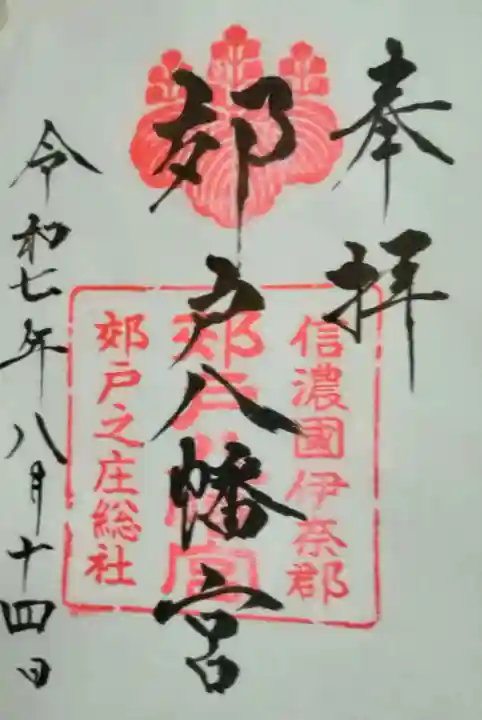 奉拝
信濃國伊奈郡
郊戸八幡宮
郊戸八幡宮
郊戸之庄総社
令和七年八月十四日